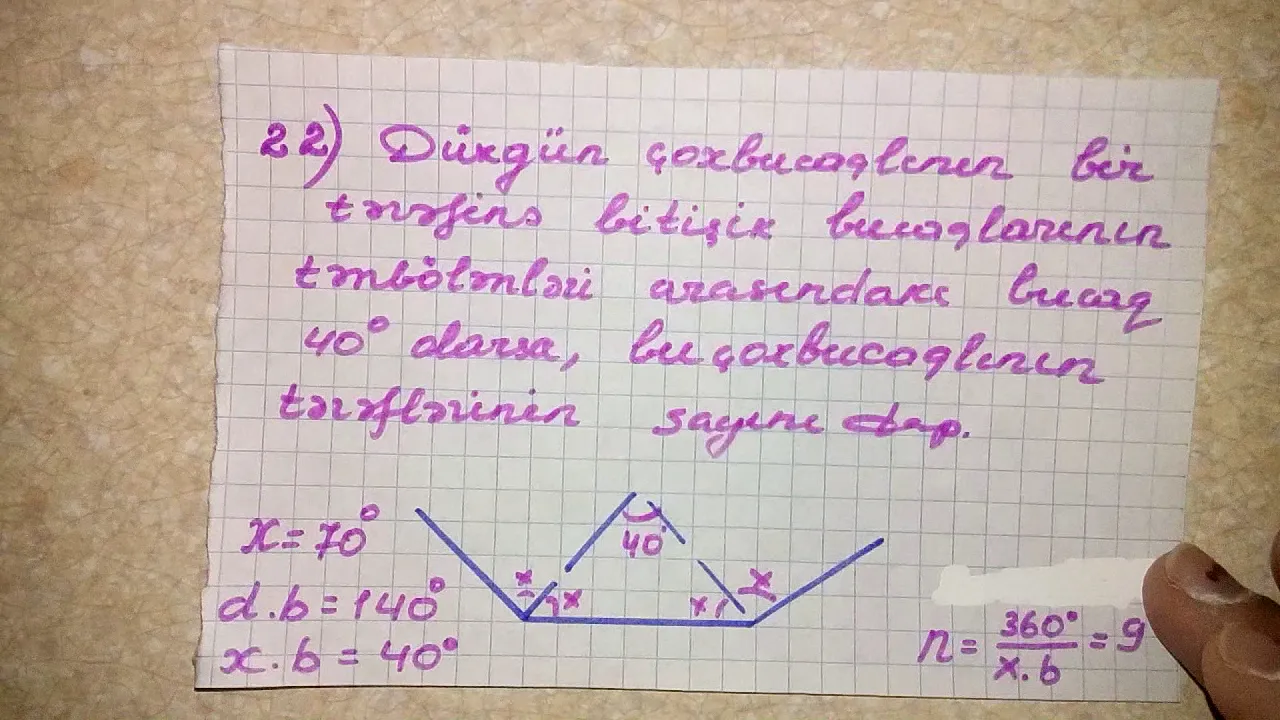 22) Düzgün çoxbucaqlının bir
tərəfinə bitişik bucaqlarının
tənbölənləri arasındakı bucaq
40° olarsa, bu çoxbucaqlının
tərəflərinin sayını tap.
40
x = 70°
x
x
x
x
d.b = 140°
x.b = 40°
n = 360°/x.b = 9